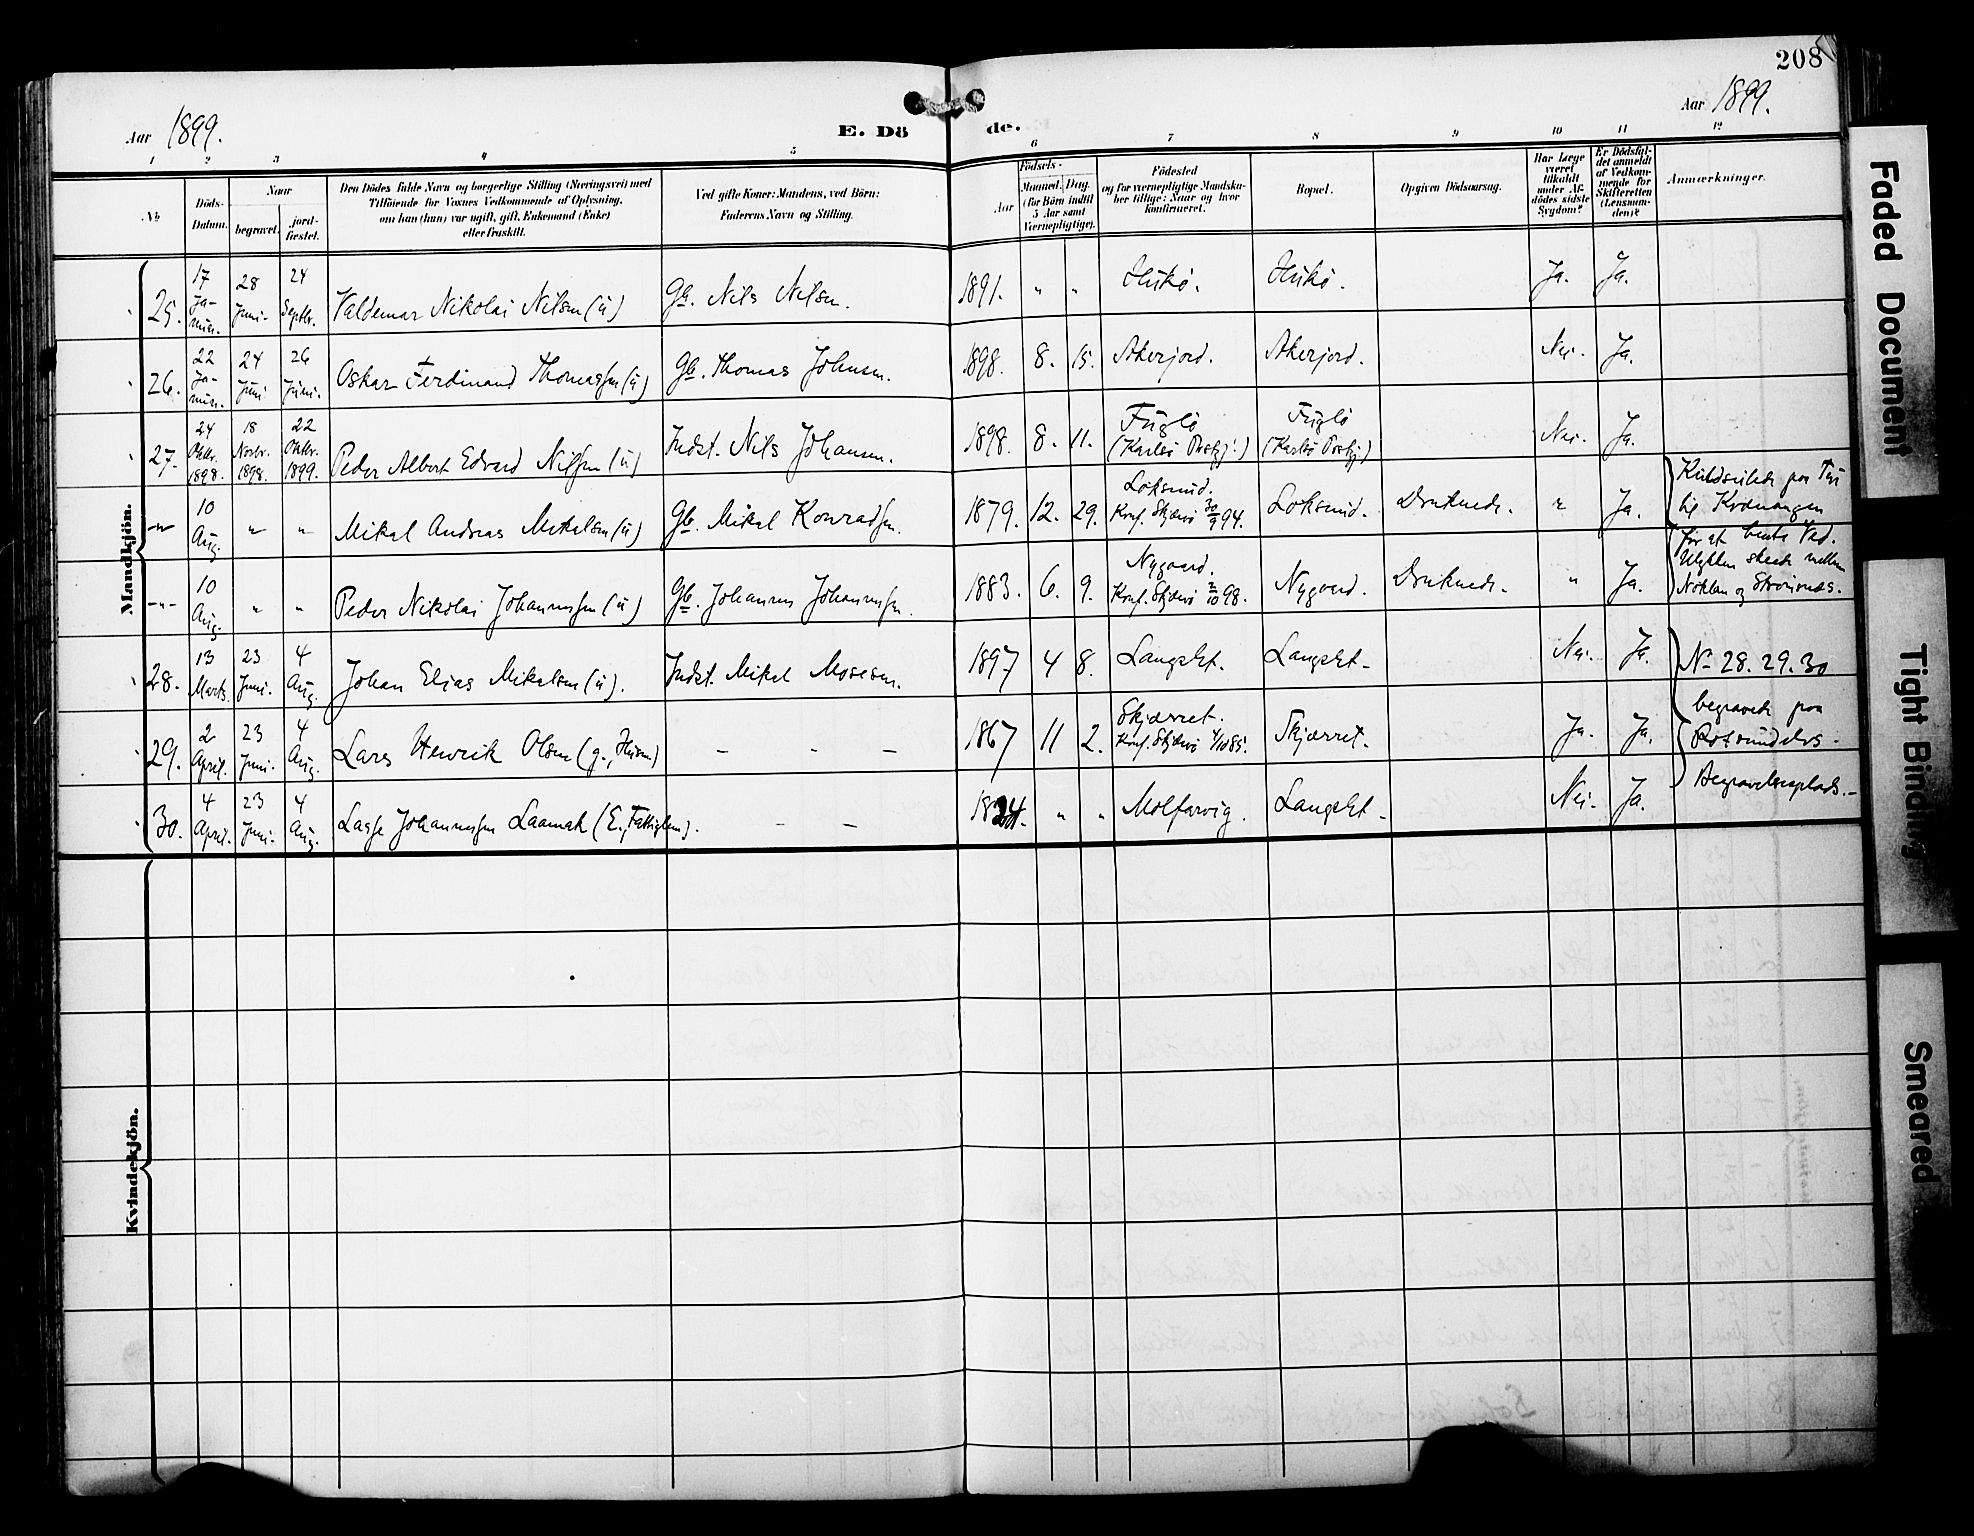 208
Aar 1899.
E. Dö de.
Aar 1899.
1 2 3 4 5 6 7 8 9 10 11 12
No
Döds-
Datum.
Naar
begravet.
jord-
fæstet.
Den Dödes fulde Navn og borgerlige Stilling (Næringsvei) med
Tilföiende for Voxnes Vedkommende af Oplysning,
om han (hun) var ugift, gift, Enkemand (Enke)
eller fraskilt.
Ved gifte Koner: Mandens, ved Börn:
Faderens Navn og Stilling.
Födsels-
Aar
Maaned. Dag.
(for Börn indtil
5 Aar samt
Værnepligtige).
Födested
og for værnepligtige Mandska-
ber tillige: Naar og hvor
konfirmeret.
Bopæl.
Opgiven Dödsaarsag.
Har Læge
været
tilkaldt
under Af-
dödes sidste
Sygdom?
Er Dödsfal-
det anmeldt
af Vedkom-
mende for
Skifteretten
(Lensman-
den)?
Anmærkninger.
Mandkjön.
25. 17 Ja-nuar. 28 Juni. 24 Septbr. Valdemar Nikolai Nilsen (ú) Gb. Nils Nilsen. 1891. " " Hukö. Hukö. Ja. Ja.
26. 22 Ja-nuar. 24 Juni 26 Juni. Oskar Ferdinand Thomassen (ú) Gb. Thomas Johnsen. 1898. 8. 15. Akerjord. Akerjord. Nei. Ja.
27. 24 Oktbr. 1898. 18 Novbr. 1898. 22 Oktbr. 1899. Peder Albert Edvard Nilssen (ú) Indst. Nils Johansen. 1898. 8. 11. Fuglö (Karlsö Prstgj.) Fuglö (Karlsö Prstgj.) Nei. Ja.
-"- 10 Aug. " " Mikal Andreas Mikalsen (ú) Gb. Mikal Konradsen. 1879. 12. 29. Löksund. Konf. Skjærvö 30/9 94. Löksund. Druknede. " Ja.
Kuldseilede paa Tur
til Kvænangen
for at hente Ved.
Ulykken skede mellem
Noklan og Strömnæs.
-"- 10 Aug. " " Peder Nikolai Johannessen (ú) Gb. Johannes Johannessen. 1883. 6. 9. Nygaard. Konf. Skjærvö 2/10 98. Nygaard. Druknede. " Ja.
28. 13 Marts. 23 Juni. 4 Aug. Johan Elias Mikalsen (ú). Indst. Mikal Mosesen. 1897 4 8. Langslet. Langslet. Nei. Ja.
No 28. 29. 30
begravede paa
Rotsundelvs
Begravelsesplads.
29. 2 April. 23 Juni. 4 Aug. Lars Henrik Olsen (g., Husm) – – – 1867 11 2. Skjærret. Konf. Skjærvö 4/10 85. Skjærret. Ja. Ja.
30. 4 April. 23 Juni. 4 Aug. Lasse Johannessen Laamak (E., Fattiglem). – – 1824. " " Molfarvig. Langslet. Nei. Ja.
Kvindekjön.
Faded Document
Tight Binding
Smeared